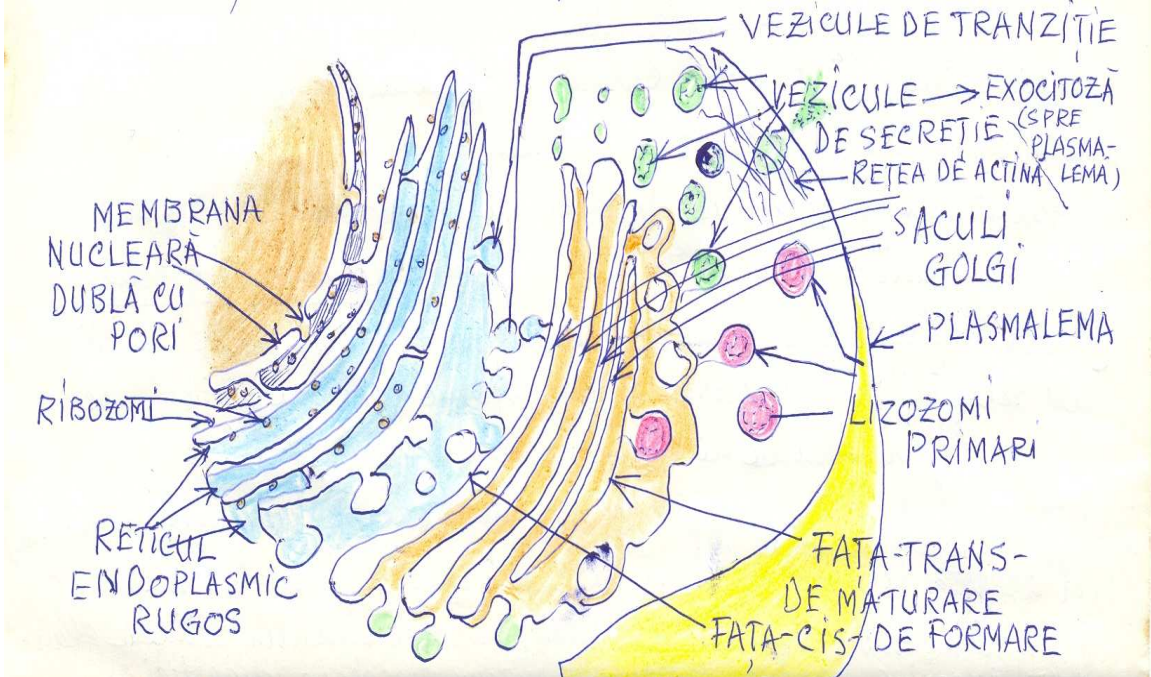 VEZICULE DE TRANZIȚIE
VEZICULE → EXOCITOZĂ
DE SECREȚIE (SPRE
PLASMA-
LEMĂ)
REȚEA DE ACTINA
SACULI
GOLGI
PLASMALEMA
LIZOZOMI
PRIMARI
FAȚA-TRANS-
DE MATURARE
FAȚA-CIS-DE FORMARE
MEMBRANA
NUCLEARĂ
DUBLĂ CU
PORI
RIBOZOMI
RETICUL
ENDOPLASMIC
RUGOS